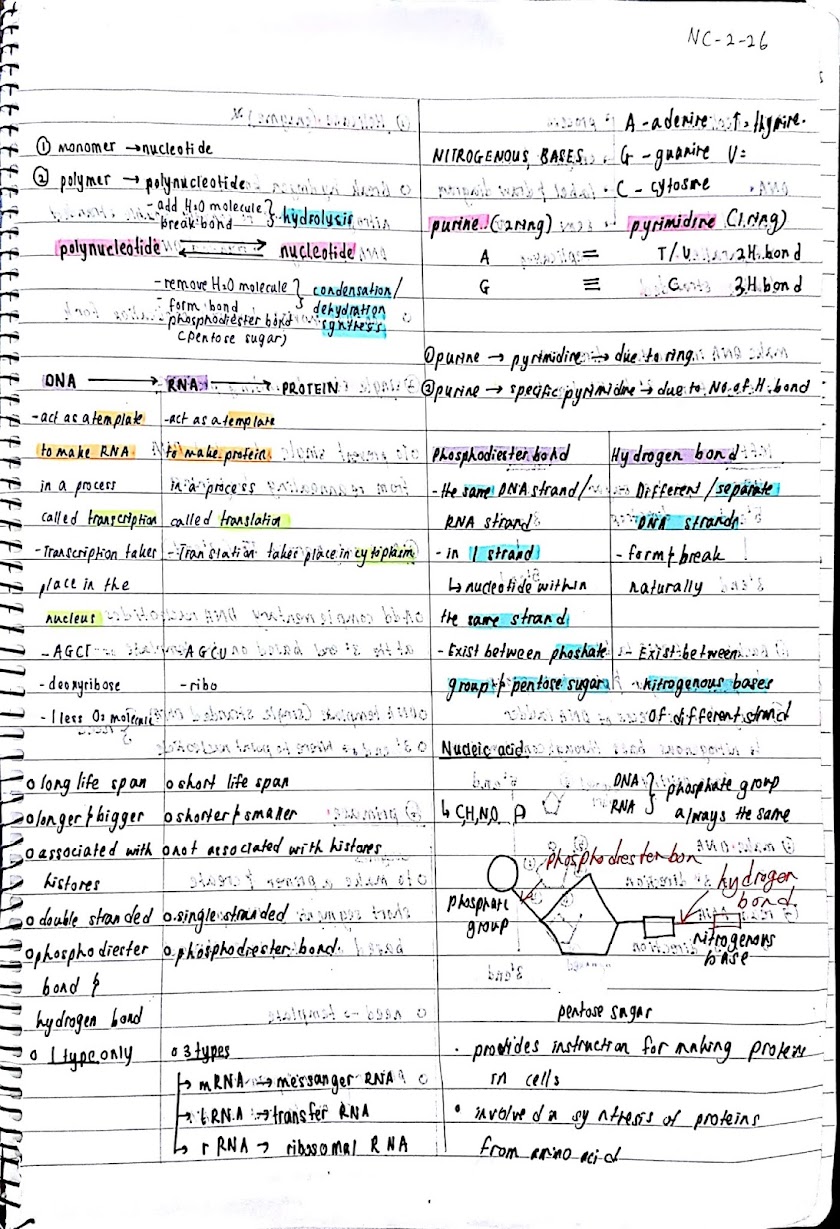 NC-2-26
① monomer → nucleotide
② polymer → polynucleotide
- add H₂O molecule } hydrolysis
- break bond
polynucleotide ⇌ nucleotide
- remove H₂O molecule } condensation/
- form bond dehydration
- phosphodiester bond synthesis
(pentose sugar)
DNA → RNA → PROTEIN
- act as a template
to make RNA
in a process
called transcription
- Transcription takes
place in the
nucleus
- AGCT
- deoxyribose
- 1 less O₂ molecule
- act as a template
to make protein
in a process
called translation
- Translation takes place in cytoplasm
- AGCU
- ribo
o long life span
o longer & bigger
o associated with
histones
o double stranded
o phosphodiester
bond &
hydrogen bond
o 1 type only
o short life span
o shorter & smaller
o not associated with histones
o single stranded
o phosphodiester bond.
o 3 types
↳ mRNA → messanger RNA
↳ tRNA → transfer RNA
↳ rRNA → ribosomal RNA
A - adenine T = thymine.
NITROGENOUS BASES G - guanine U =
C - cytosine
purine (2 ring) pyrimidine (1 ring)
A = T/U 2H. bond
G ≡ C 3H. bond
① purine → pyrimidine → due to ring.
② purine → specific pyrimidine → due to No. of H. bond
Phosphodiester bond
- the same DNA strand/
RNA strand
- in 1 strand
↳ nucleotide within
the same strand
- Exist between phoshate
group & pentose sugar
Hydrogen bond
- Different /separate
DNA strands
- form & break
naturally
- Exist between
nitrogenous bases
of different strand
Nucleic acid
↳ C,H,N,O, P
DNA } phosphate group
RNA always the same
phosphodiester bon
hydrogen
bond
phosphate
group
nitrogenous
base
pentose sugar
· provides instruction for making protein
in cells
• involved in synthesis of proteins
from amino acid